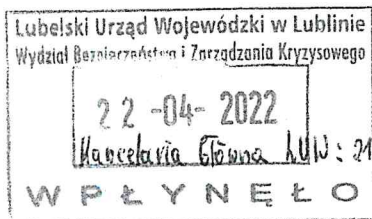 Lubelski Urząd Wojewódzki w Lublinie
Wydział Bezpieczeństwa i Zarządzania Kryzysowego
22 -04- 2022
Kancelaria Główna LUW: 21
WPŁYNĘŁO